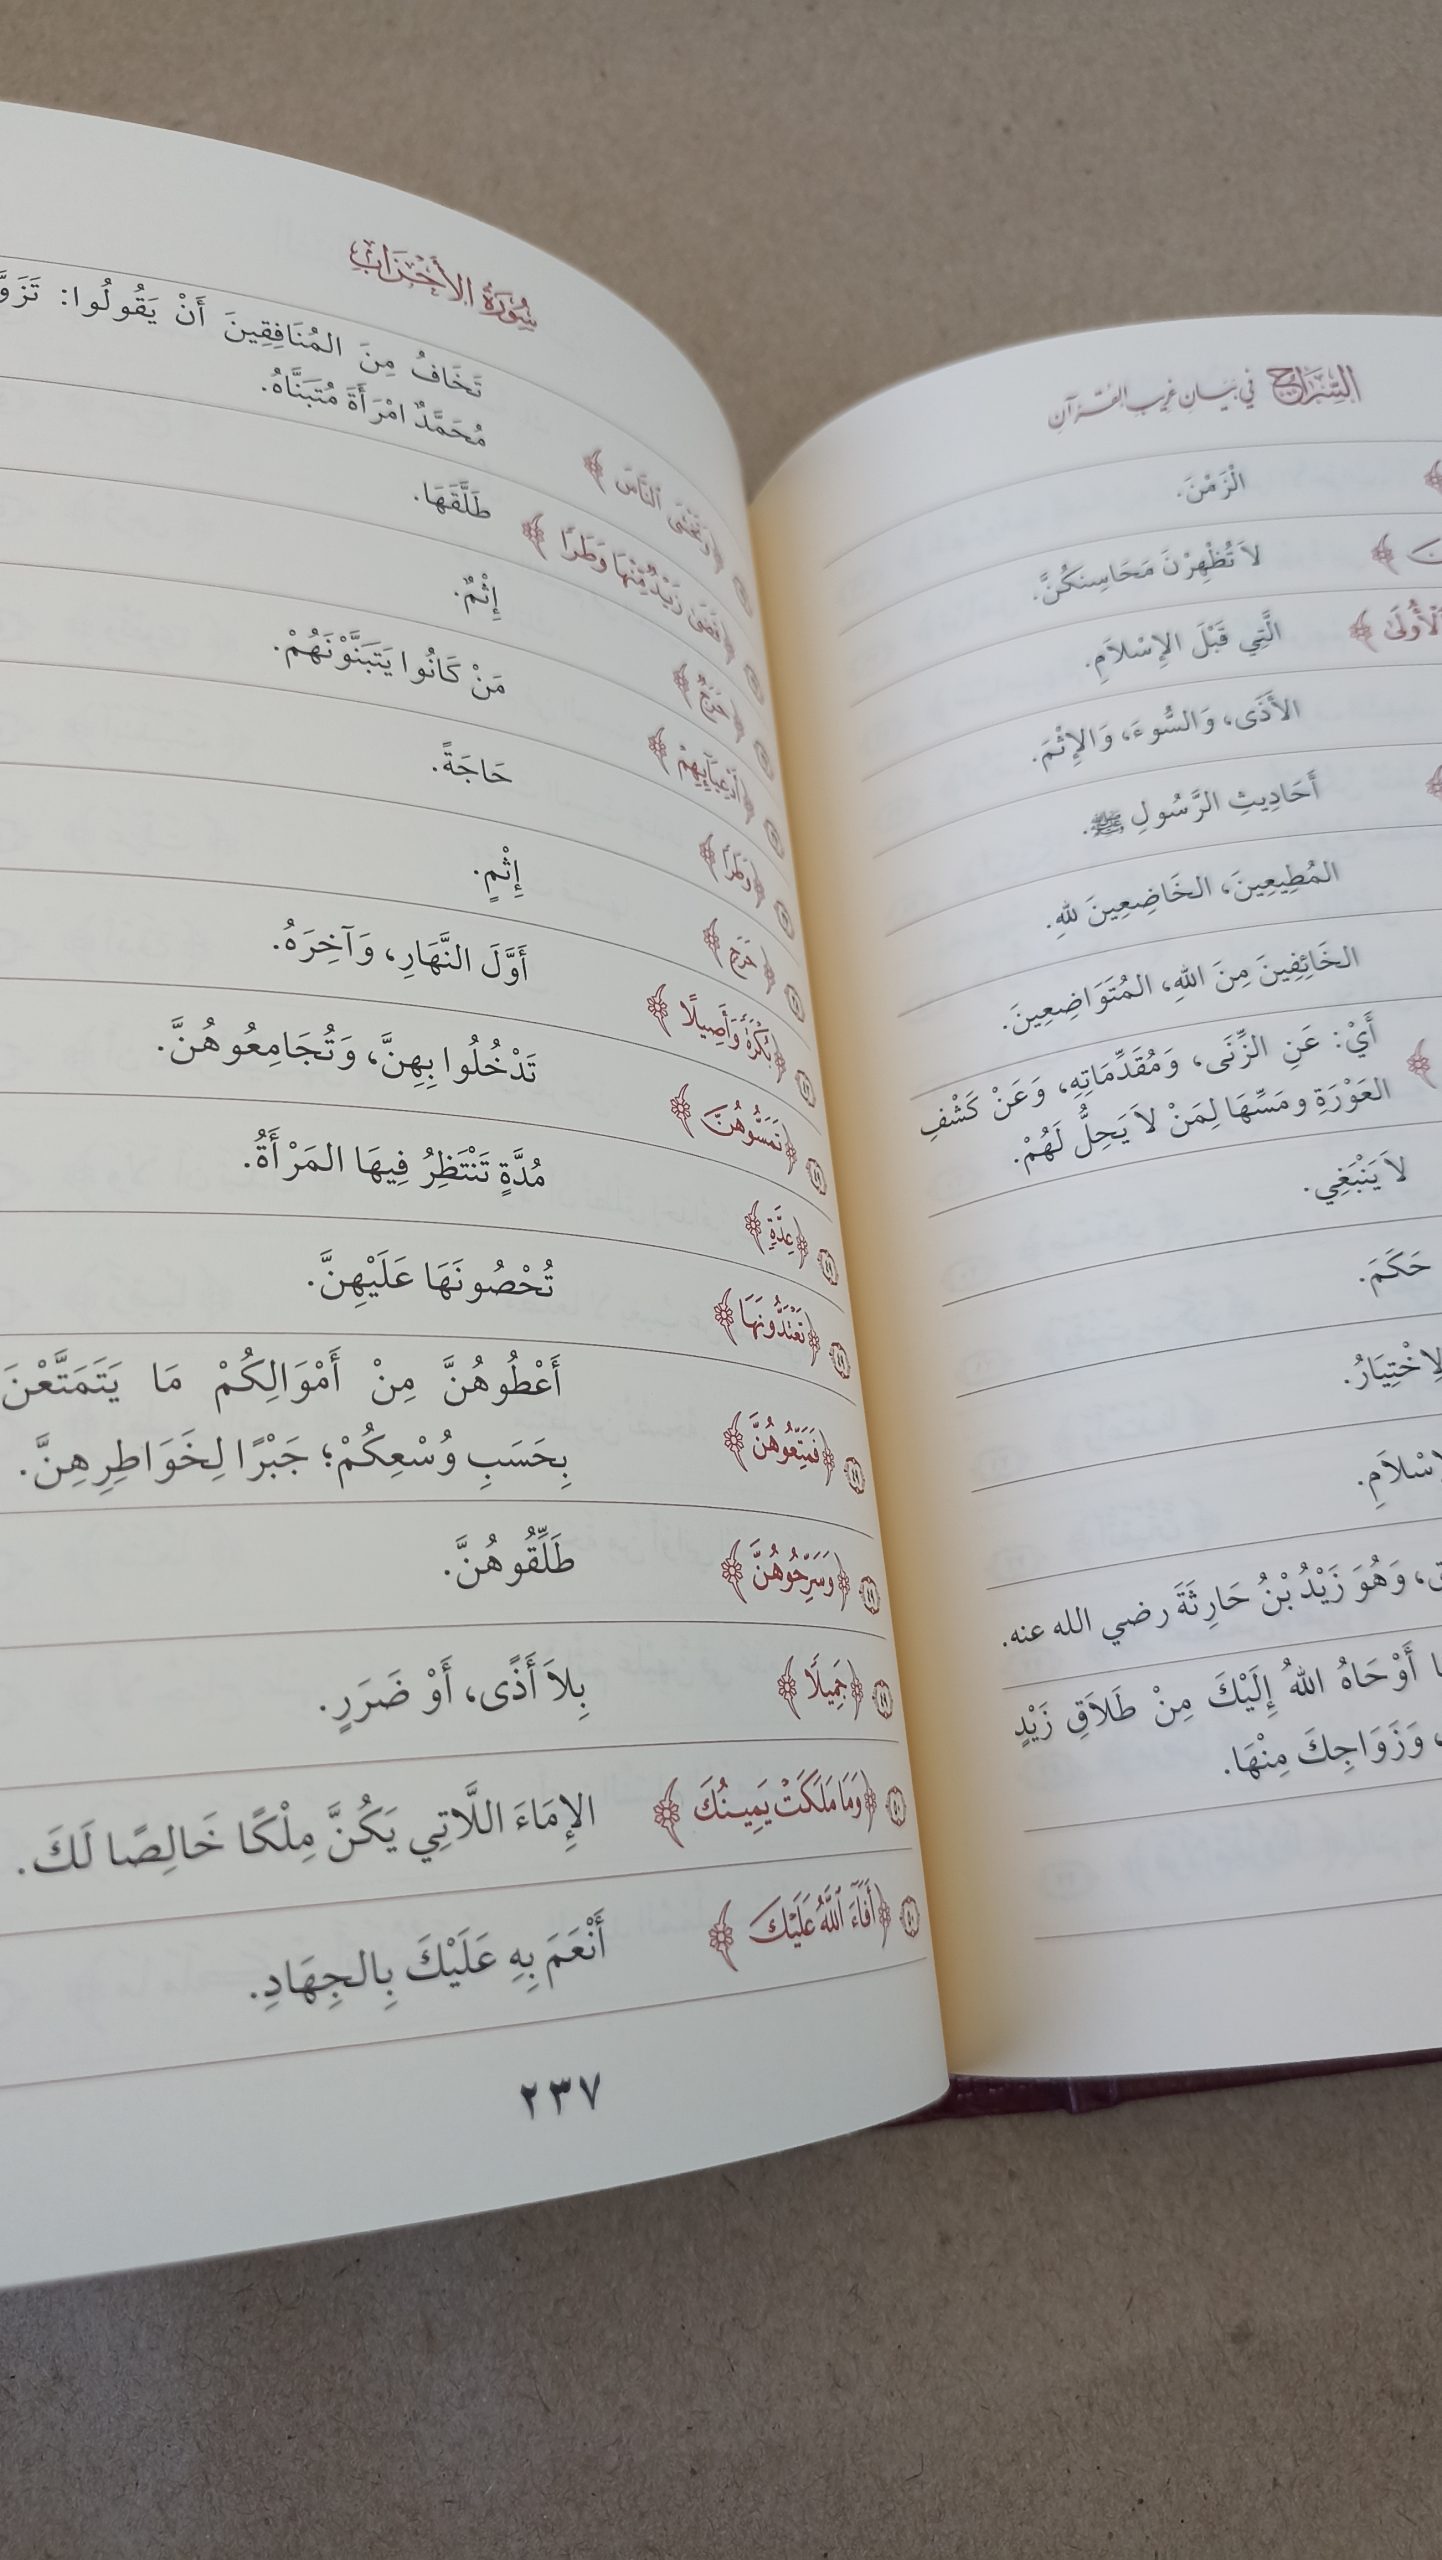 السِّرَاجُ فِي بَيَانِ غَرِيبِ القُرْآنِ
الْزَمْنَ.
لاَ تُظْهِرْنَ مَحَاسِنَكُنَّ.
الْأُولَىٰ ﴾ الَّتِي قَبْلَ الإِسْلاَمِ.
الأَذَى، وَالسُّوءَ، وَالإِثْمَ.
أَحَادِيثِ الرَّسُولِ ﷺ.
المُطِيعِينَ، الخَاضِعِينَ للهِ.
الخَائِفِينَ مِنَ اللهِ، المُتَوَاضِعِينَ.
أَيْ: عَنِ الزِّنَى، وَمُقَدِّمَاتِهِ، وَعَنْ كَشْفِ
العَوْرَةِ ومَسِّهَا لِمَنْ لاَ يَحِلُّ لَهُمْ.
لاَ يَنْبَغِي.
حَكَمَ.
وَهُوَ زَيْدُ بْنُ حَارِثَةَ رضي الله عنه.
أَوْحَاهُ اللهُ إِلَيْكَ مِنْ طَلاَقِ زَيْدٍ
وَزَوَاجِكَ مِنْهَا.
سُورَةُ الأَحْزَابِ
﴿ وَتَخْشَى ٱلنَّاسَ ﴾ تَخَافُ مِنَ المُنَافِقِينَ أَنْ يَقُولُوا:
مُحَمَّدٌ امْرَأَةَ مُتَبَنَّاهُ.
﴿ قَضَىٰ زَيْدٌ مِّنْهَا وَطَرًا ﴾ طَلَّقَهَا.
﴿ حَرَجٌ ﴾ إِثْمٌ.
﴿ أَدْعِيَآئِهِمْ ﴾ مَنْ كَانُوا يَتَبَنَّوْنَهُمْ.
﴿ وَطَرًا ﴾ حَاجَةً.
﴿ حَرَجٍ ﴾ إِثْمٍ.
﴿ بُكْرَةً وَأَصِيلًا ﴾ أَوَّلَ النَّهَارِ، وَآخِرَهُ.
٤٩ ﴿ تَمَسُّوهُنَّ ﴾ تَدْخُلُوا بِهِنَّ، وَتُجَامِعُوهُنَّ.
٤٩ ﴿ عِدَّةٍ ﴾ مُدَّةٍ تَنْتَظِرُ فِيهَا المَرْأَةُ.
٤٩ ﴿ تَعْتَدُّونَهَا ﴾ تُحْصُونَهَا عَلَيْهِنَّ.
٤٩ ﴿ فَمَتِّعُوهُنَّ ﴾ أَعْطُوهُنَّ مِنْ أَمْوَالِكُمْ مَا يَتَمَتَّعْنَ
بِحَسَبِ وُسْعِكُمْ؛ جَبْرًا لِخَوَاطِرِهِنَّ.
٤٩ ﴿ وَسَرِّحُوهُنَّ ﴾ طَلِّقُوهُنَّ.
٤٩ ﴿ جَمِيلًا ﴾ بِلاَ أَذًى، أَوْ ضَرَرٍ.
٥٠ ﴿ وَمَا مَلَكَتْ يَمِينُكَ ﴾ الإِمَاءَ اللَّاتِي يَكُنَّ مِلْكًا خَالِصًا لَكَ.
٥٠ ﴿ أَفَآءَ ٱللَّهُ عَلَيْكَ ﴾ أَنْعَمَ بِهِ عَلَيْكَ بِالجِهَادِ.
٢٣٧